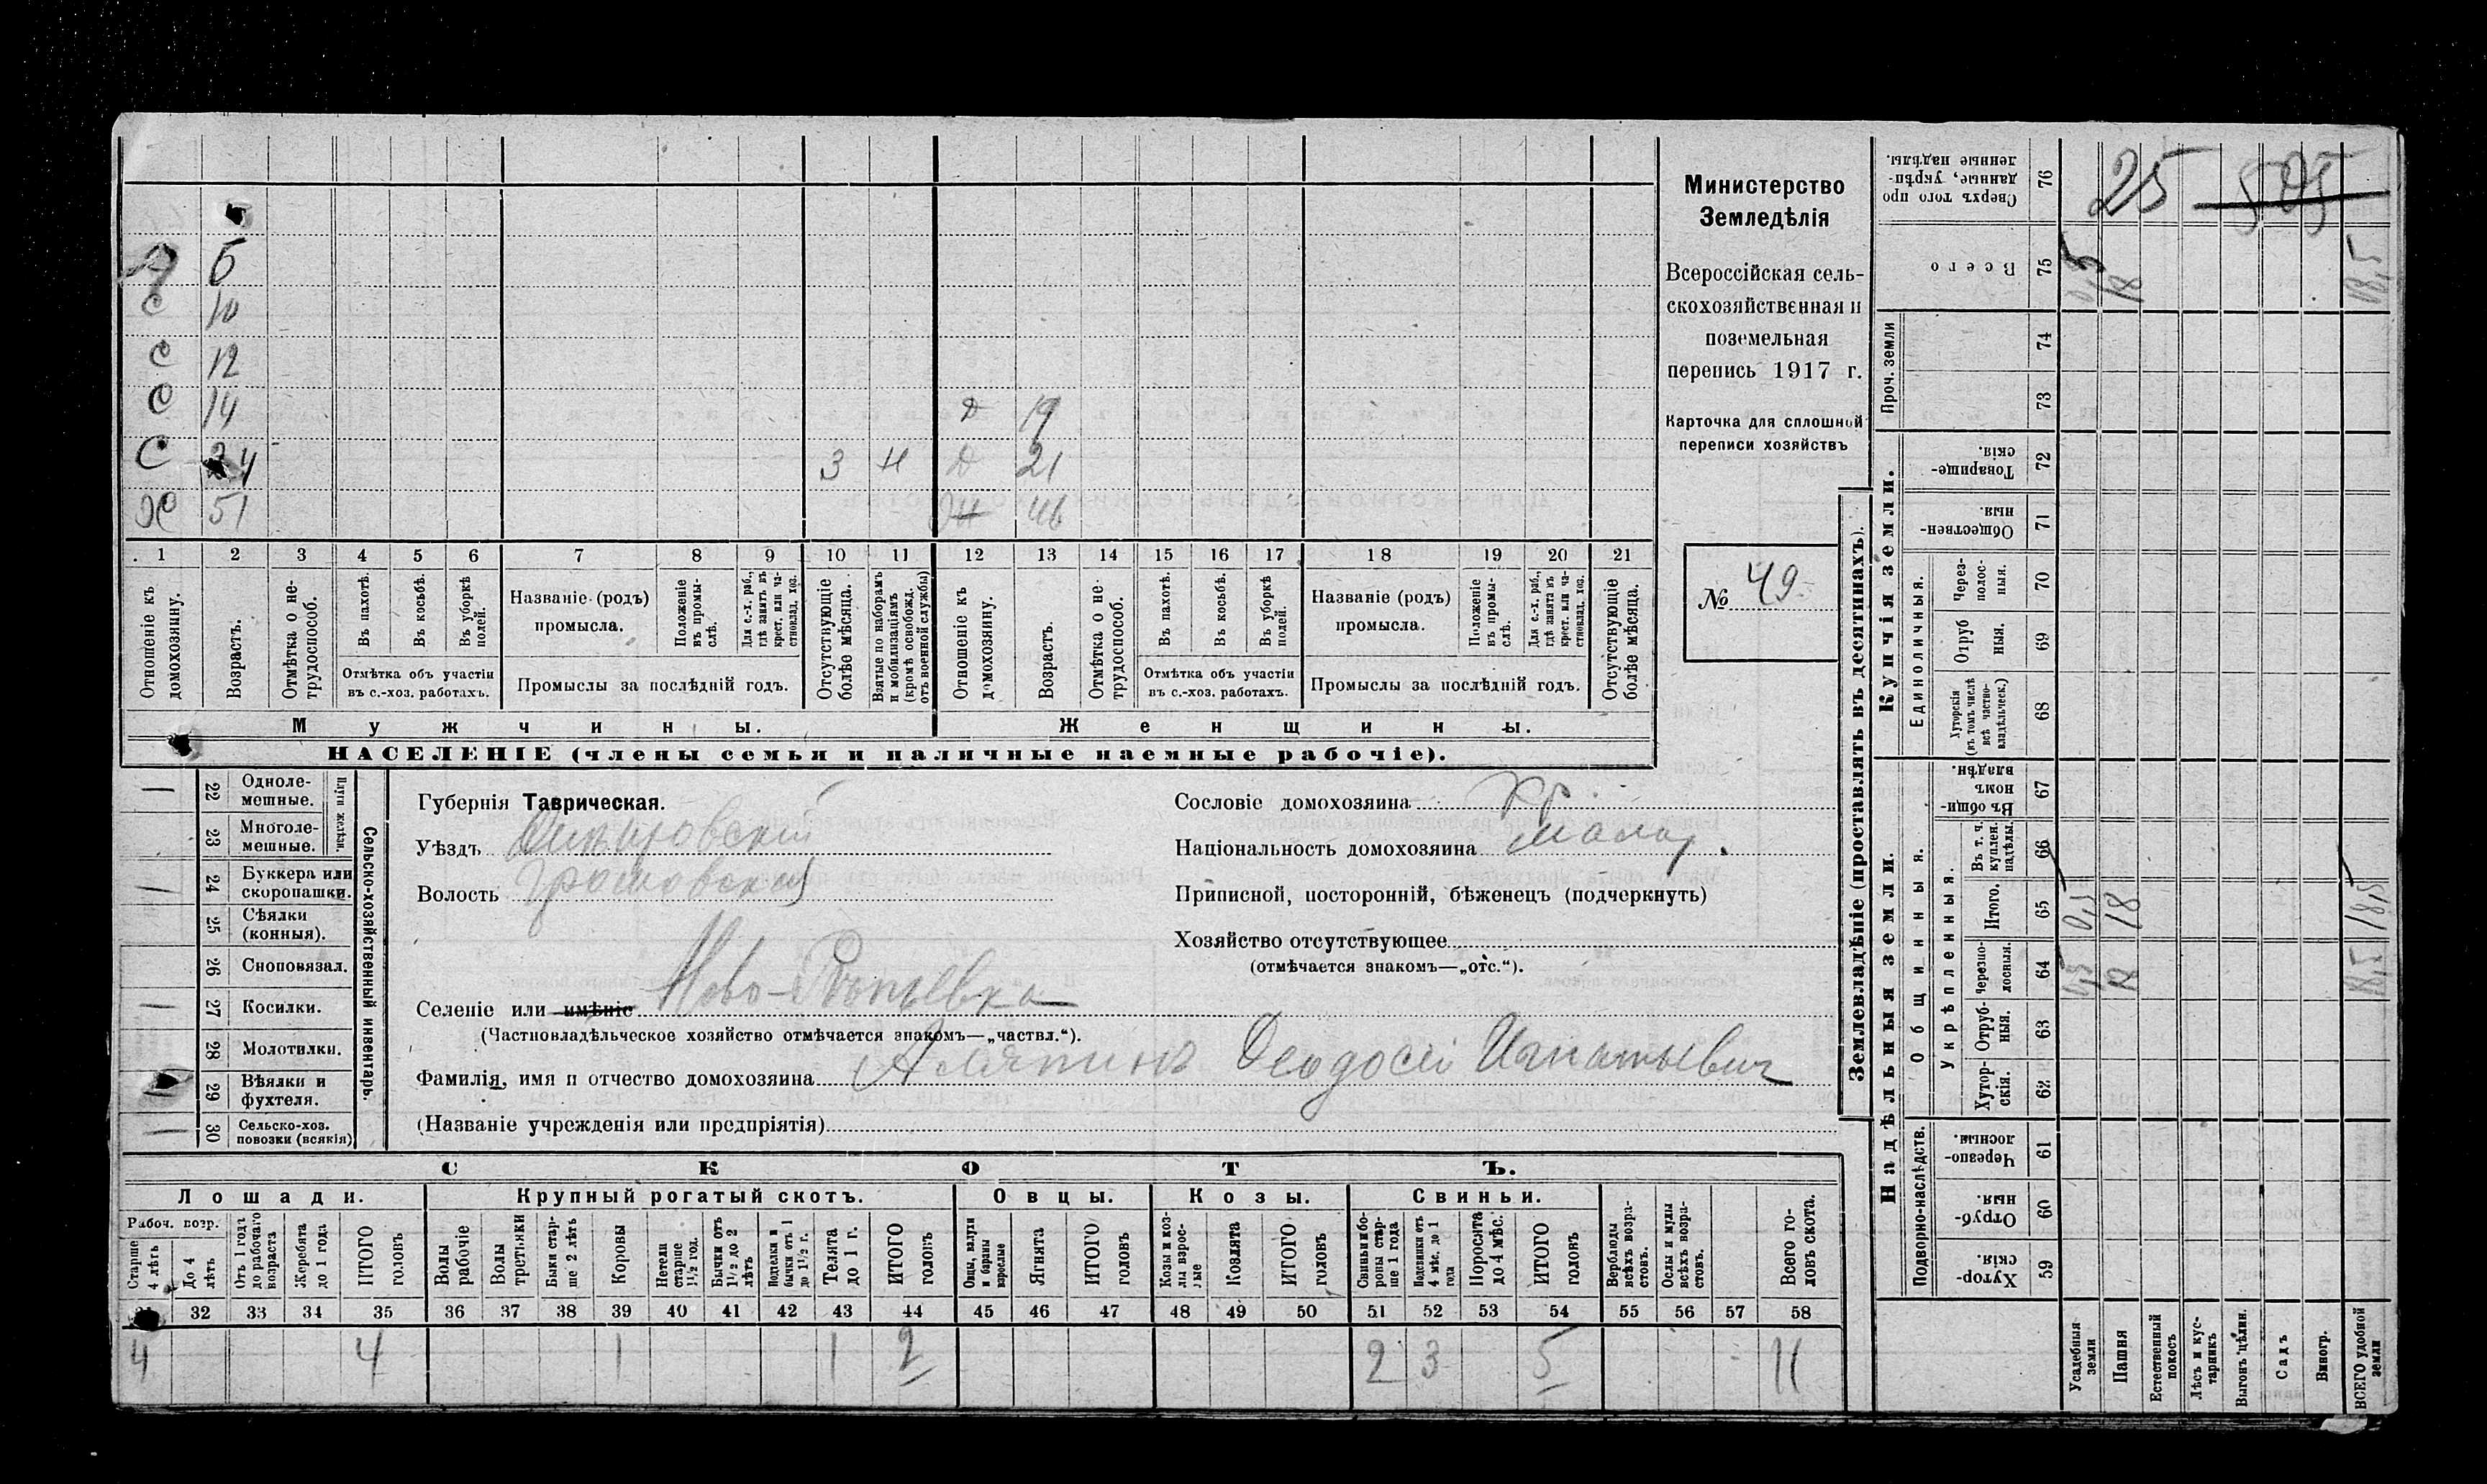 Министерство
Земледѣлія
Всероссійская сель-
скохозяйственная и
поземельная
перепись 1917 г.
Карточка для сплошной
переписи хозяйствъ
№ 49
Б
С 10
С 12
С 14 Д 19
С 3 Н Д 21
51 46
1 2 3 4 5 6 7 8 9 10 11 12 13 14 15 16 17 18 19 20 21
Отношеніе къ домохозяину.
Возрастъ.
Отмѣтка о не-трудоспособ.
Въ пахотѣ.
Въ косьбѣ.
Въ уборкѣ полей.
Отмѣтка объ участіи
въ с.-хоз. работахъ.
Названіе (родъ)
промысла.
Положеніе въ промы-слѣ.
Для с.-х. раб., гдѣ занятъ въ крест. или ча-стновлад. хоз.
Промыслы за послѣдній годъ.
Отсутствующіе болѣе мѣсяца.
Взятые по наборамъ и мобилизаціямъ (кромѣ освобожд. отъ военной службы)
Отношеніе къ домохозяину.
Возрастъ.
Отмѣтка о не-трудоспособ.
Въ пахотѣ.
Въ косьбѣ.
Въ уборкѣ полей.
Отмѣтка объ участіи
въ с.-хоз. работахъ.
Названіе (родъ)
промысла.
Положеніе въ промы-слѣ.
Для с.-х. раб., гдѣ занята въ крест. или ча-стновлад. хоз.
Промыслы за послѣдній годъ.
Отсутствующіе болѣе мѣсяца.
Мужчины.
Женщины.
НАСЕЛЕНІЕ (члены семьи и наличные наемные рабочіе).
Сельско-хозяйственный инвентарь.
Плуги желѣзн.
22 Одноле-
мешные.
23 Многоле-
мешные.
24 Буккера или
скоропашки.
25 Сѣялки
(конныя).
26 Сноповязал.
27 Косилки.
28 Молотилки.
29 Вѣялки и
фухтеля.
30 Сельско-хоз.
повозки (всякія)
Губернія Таврическая.
Уѣздъ
Волость
Селеніе или имѣніе Ново-
(Частновладѣльческое хозяйство отмѣчается знакомъ—„частвл.“).
Фамилія, имя и отчество домохозяина Аляпинъ Феодосій Игнатьевич
(Названіе учрежденія или предпріятія)
Сословіе домохозяина кр.
Національность домохозяина малор.
Приписной, посторонній, бѣженецъ (подчеркнуть)
Хозяйство отсутствующее
(отмѣчается знакомъ—„отс.“).
СКОТЪ.
Лошади.
Крупный рогатый скотъ.
Овцы.
Козы.
Свиньи.
Рабоч. возр.
Старше 4 лѣтъ
До 4 лѣтъ
Отъ 1 года до рабочаго возраста
Жеребята до 1 года
ИТОГО головъ
Волы рабочіе
Волы третьяки
Быки стар-ше 2 лѣтъ
Коровы
Нетели старше 1½ год.
Бычки отъ 1½ до 2 лѣтъ
Подтелки и бычки отъ 1 до 1½ г.
Телята до 1 г.
ИТОГО головъ
Овцы, валухи и бараны взрослые
Ягнята
ИТОГО головъ
Козы и коз-лы взрос-лые
Козлята
ИТОГО головъ
Свиньи и бо-роны стар-ше 1 года
Подсвинки отъ 4 мѣс. до 1 года
Поросята до 4 мѣс.
ИТОГО головъ
Верблюды всѣхъ возра-стовъ.
Ослы и мулы всѣхъ возра-стовъ.
Всего го-ловъ скота.
32 33 34 35 36 37 38 39 40 41 42 43 44 45 46 47 48 49 50 51 52 53 54 55 56 57 58
4 4 1 1 2 2 3 5 11
Землевладѣніе (проставлять въ десятинахъ).
Купчія земли.
Надѣльныя земли.
Проч. земли
Единоличныя.
Общинныя.
Укрѣпленныя.
Подворно-наслѣдств.
Сверхъ того про-данные, укрѣп-ленные надѣлы. 76 25
Всего 75 0,5 18 18,5
74
73
Товарище-скія. 72
Обществен-ныя. 71
Через-полос-ныя. 70
Отруб-ныя. 69
Хуторскія (въ томъ числѣ всѣ частно-владѣльческ.) 68
Въ общи-номъ владѣн. 67
Въ т. ч. куплен. надѣлы. 66
Итого. 65 0,5 18 18,5
Черезпо-лосныя. 64 0,5 18 18,5
Отруб-ныя. 63
Хутор-скія. 62
Черезпо-лосныя. 61
Отруб-ныя. 60
Хутор-скія. 59
Усадебныя земли
Пашня
Естественный покосъ
Лѣсъ и кус-тарникъ
Выгонъ цѣлин.
Садъ
Виногр.
ВСЕГО удобной земли